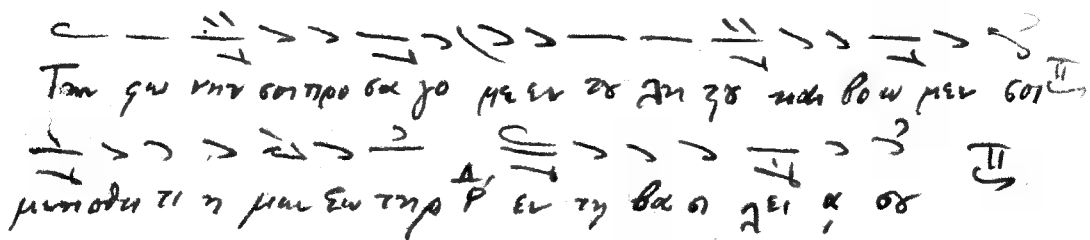 Την φω νην σοι προ σα γο με εν τȣ λη ϛȣ και βο ω μεν σοι
μνησθη τι η μων Σω τηρ εν τη βα σι λει ᾳ σȣ